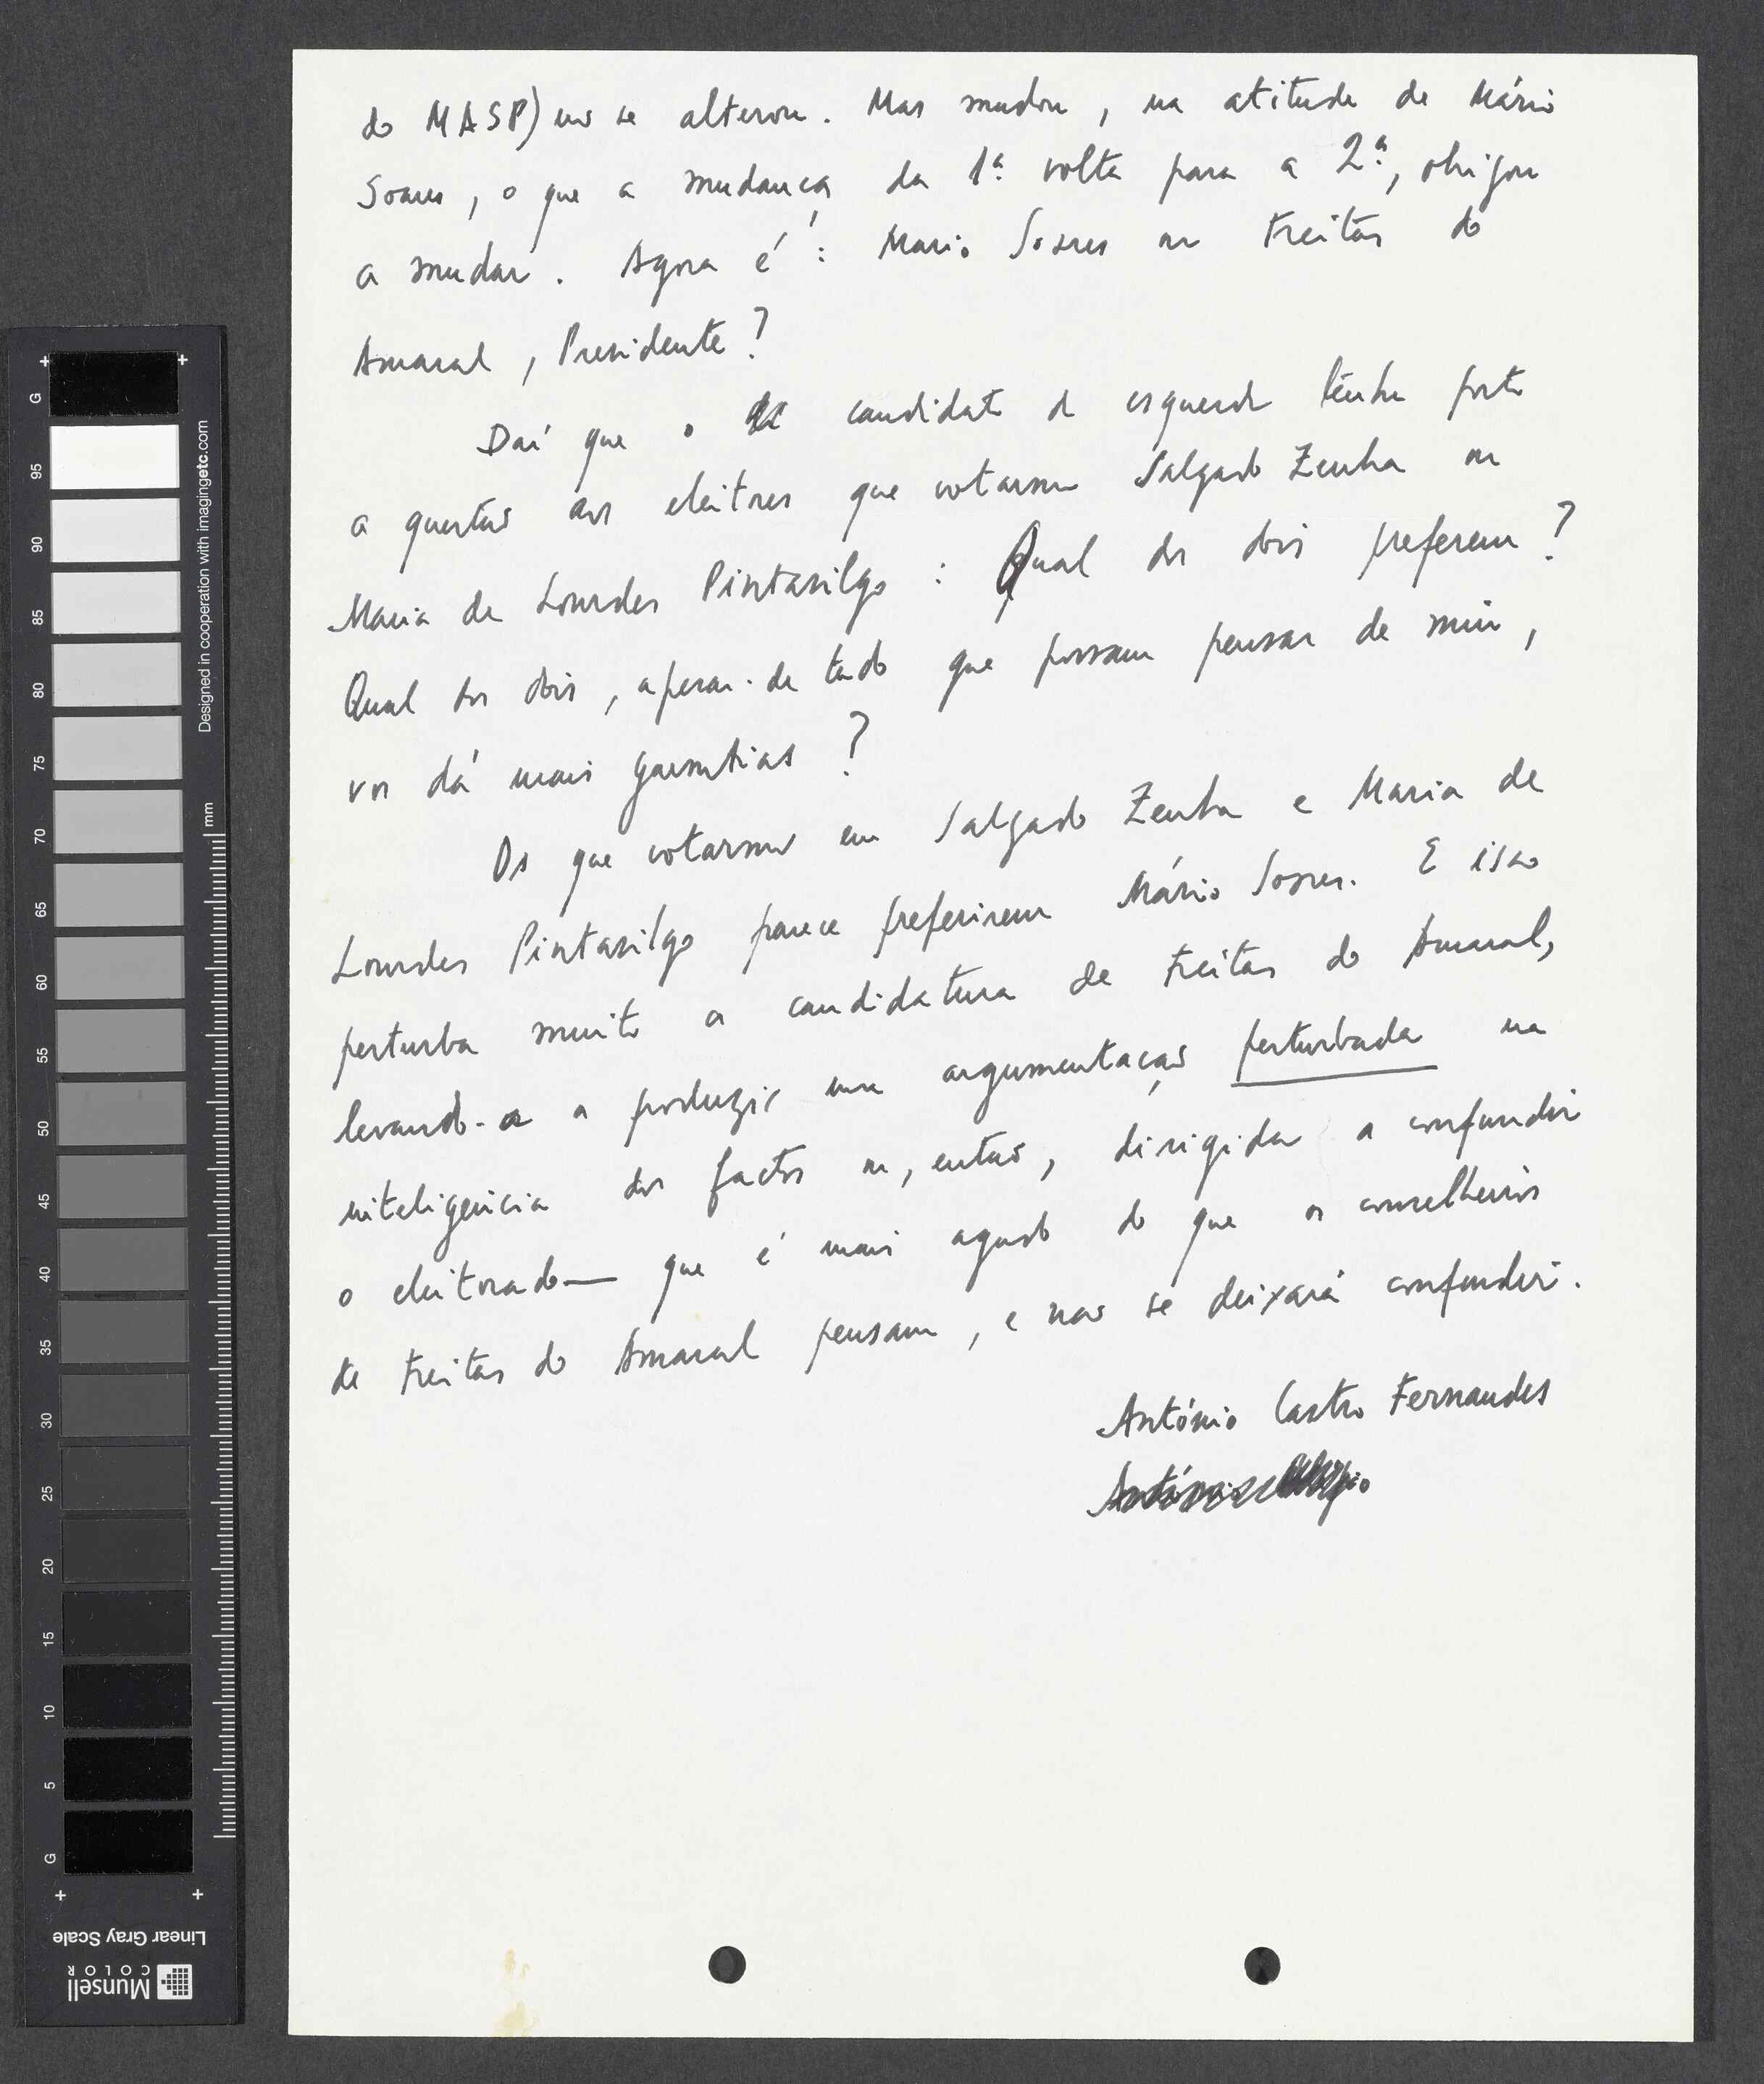 do MASP) não se alterou. Mas mudou, na atitude de Mário
Soares, o que a mudança da 1ª volta para a 2ª, obrigou
a mudar. Agora é: Mario Soares ou Freitas do
Amaral, Presidente?
Daí que o candidato de esquerda tenha posto
a questão aos eleitores que votaram Salgado Zenha ou
Maria de Lourdes Pintasilgo: Qual dos dois preferem?
Qual dos dois, apesar de tudo que possam pensar de mim,
vos dá mais garantias?
Os que votaram em Salgado Zenha e Maria de
Lourdes Pintasilgo parece preferirem Mário Soares. E isso
perturba muito a candidatura de Freitas do Amaral,
levando-a a produzir uma argumentação perturbada na
inteligência dos factos ou, então, dirigida a confundir
o eleitorado — que é mais agudo do que os conselheiros
de Freitas do Amaral pensam, e não se deixará confundir.
António Castro Fernandes
G 95 90 85 80 75 70 65 60 55 50 45 40 35 30 25 20 15 10 5 G
Designed in cooperation with imagingetc.com
mm
Linear Gray Scale
Munsell
COLOR